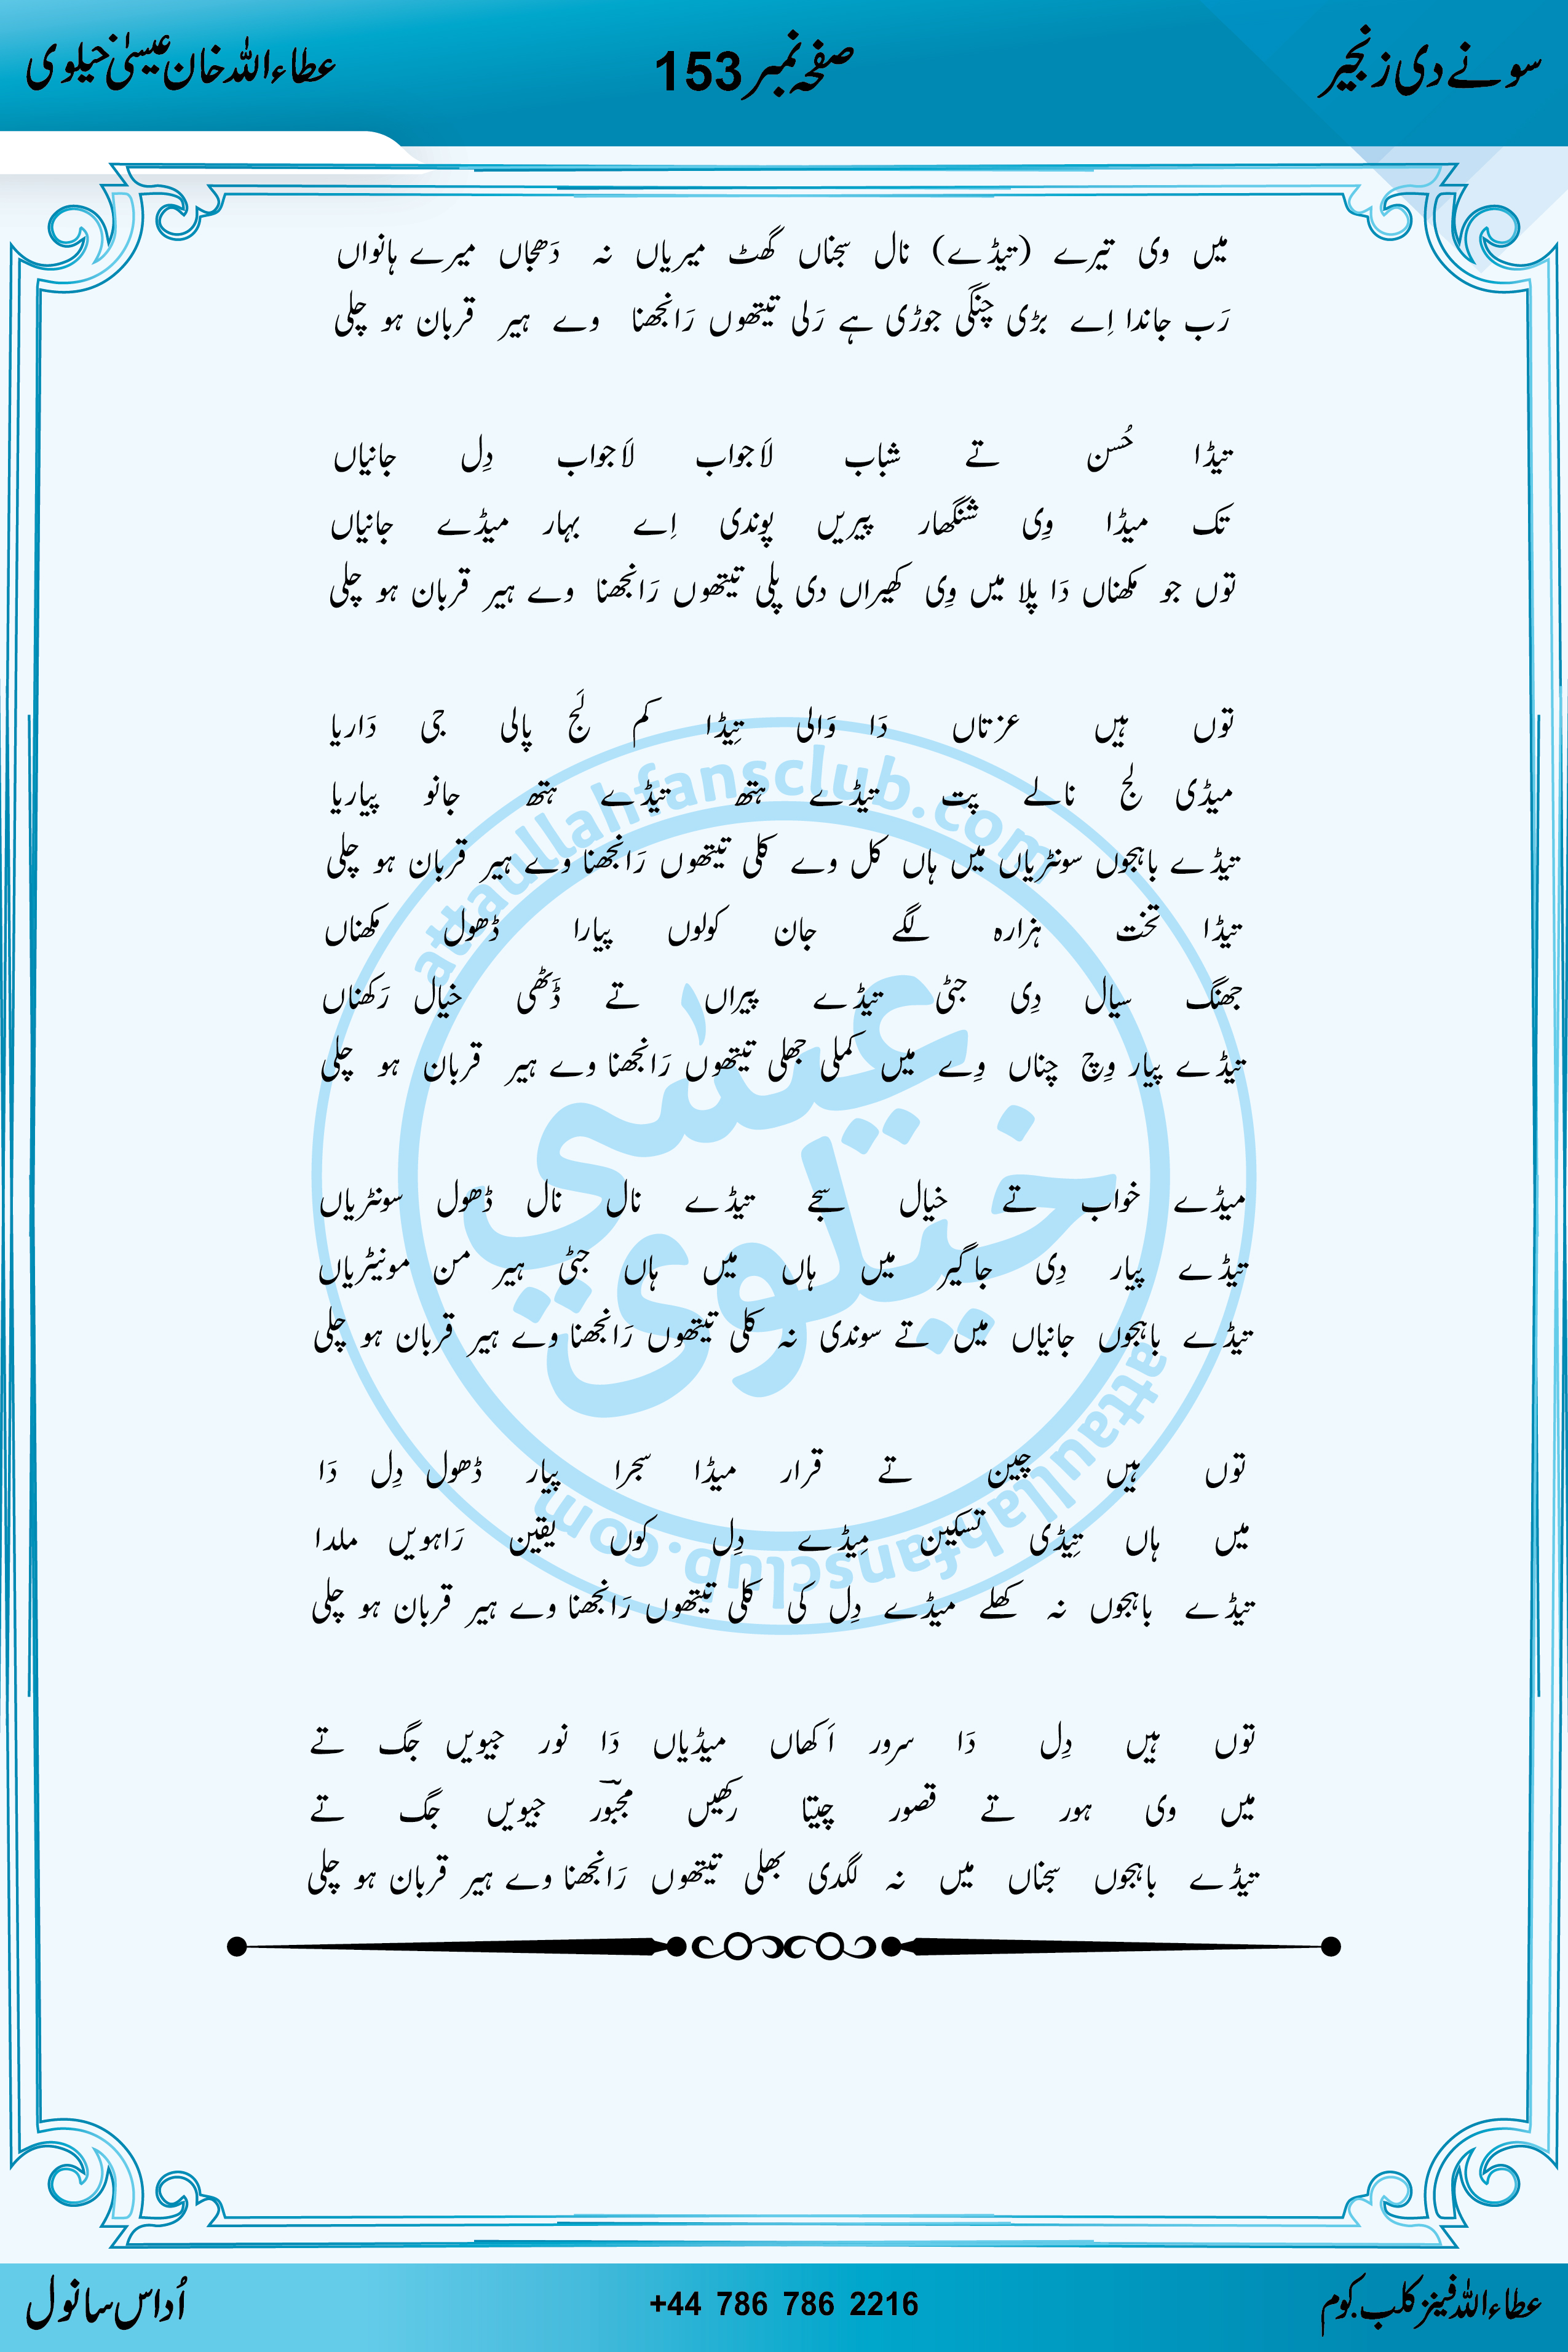 سونے دی زنجیر
صفحہ نمبر 153
عطاءاللہ خان عیسیٰ خیلوی
میں وی تیرے (تیڈے) نال سجناں گھٹ میریاں نہ دَھجاں میرے ہانواں
رَب جاندا اِے بڑی چنگی جوڑی ہے رَلی تیتھوں رَانجھنا وے ہیر قربان ہو چلی
تیڈا حُسن تے شباب لاَجواب لاَجواب دِل جانیاں
تک میڈا وِی شنگھار پیریں پوندی اِے بہار میڈے جانیاں
توں جو مکھناں دَا پلا میں وِی کھیراں دی پلی تیتھوں رَانجھنا وے ہیر قربان ہو چلی
توں ہیں عزتاں دَا وَالی تِیڈا کم لَج پالی جی دَاریا
میڈی لج نالے پت تیڈے ہتھ تیڈے ہتھ جانو پیاریا
تیڈے باہجوں سونٹریاں میں ہاں کل وے کلی تیتھوں رَانجھنا وے ہیر قربان ہو چلی
تیڈا تخت ہزارہ لگے جان کولوں پیارا ڈھول مکھناں
جھنگ سیال دِی جٹی تیڈے پیراں تے ڈَٹھی خیال رَکھناں
تیڈے پیار وِچ چناں وِے میں کملی جھلی تیتھوں رَانجھنا وے ہیر قربان ہو چلی
میڈے خواب تے خیال سجے تیڈے نال نال ڈھول سونٹریاں
تیڈے پیار دِی جاگیر میں ہاں میں ہاں جٹی ہیر من مونیٹریاں
تیڈے باہجوں جانیاں میں تے سوندی نہ کلی تیتھوں رَانجھنا وے ہیر قربان ہو چلی
توں ہیں چین تے قرار میڈا سجرا پیار ڈھول دِل دَا
میں ہاں تِیڈی تسکین مِیڈے دِل کوں یقین رَاہویں ملدا
تیڈے باہجوں نہ کھلے میڈے دِل کی کلی تیتھوں رَانجھنا وے ہیر قربان ہو چلی
توں ہیں دِل دَا سرور اَکھاں میڈیاں دَا نور جیویں جگ تے
میں وی ہور تے قصور چیتا رکھیں مجبور جیویں جگ تے
تیڈے باہجوں سجناں میں نہ لگدی بھلی تیتھوں رَانجھنا وے ہیر قربان ہو چلی
attaullahfansclub.com
عیسیٰ
خیلوی
attaullahfansclub.com
عطاءاللہ فینز کلب.کوم
+44 786 786 2216
اُداس سانول